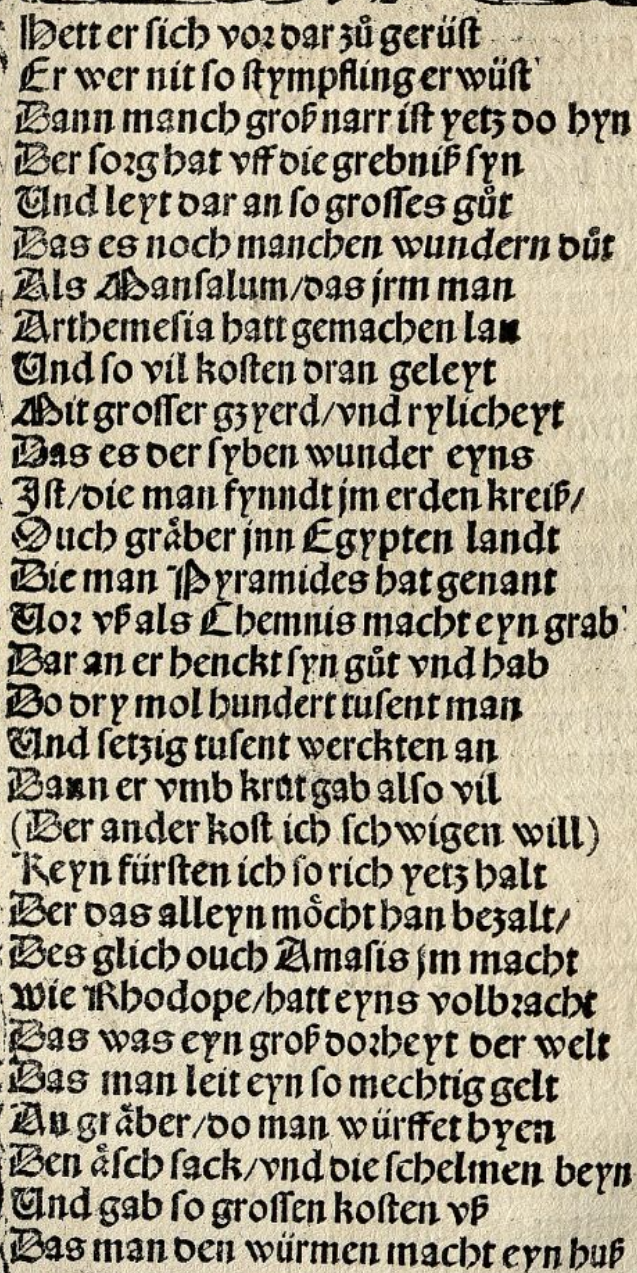 Hett er sich vor dar zuͦ gerüst
Er wer nit so stympfling erwüst
Dann manch groß narr ist yetz do hyn
Der sorg hat vff die grebniß syn
Und leyt dar an so grosses guͦt
Das es noch manchen wundern duͦt
Als Mansalum/das jrm man
Arthemesia hatt gemachen lan
Und so vil kosten dran geleyt
Mit grosser gzyerd/vnd rylicheyt
Das es der syben wunder eyns
Ist/die man fynndt jm erden kreiß/
Ouch graͤber jnn Egypten landt
Die man Pyramides hat genant
Vor vß als Chemnis macht eyn grab
Dar an er henckt syn guͦt vnd hab
Do dry mol hundert tusent man
Und setzig tusent werckten an
Dann er vmb krut gab also vil
(Der ander kost ich schwigen will)
Keyn fürsten ich so rich yetz halt
Der das alleyn moͤcht han bezalt/
Des glich ouch Amasis jm macht
Wie Rhodope/hatt eyns volbracht
Das was eyn groß dorheyt der welt
Das man leit eyn so mechtig gelt
An graͤber/do man würffet hyen
Den aͤsch sack/vnd die schelmen beyn
Und gab so grossen kosten vß
Das man den würmen macht eyn huß